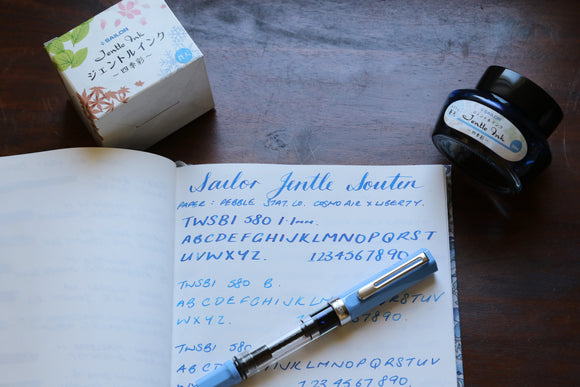 SAILOR
Jentle Ink
ジェントルインク
～四季彩～
SAILOR
Jentle Ink
Sailor Jentle Souten
PAPER: PEBBLE STAT. CO. COSMO AIR X LIBERTY.
TWSBI 580 1.1mm.
ABCDEFGHIJKLMNOPQRST
UVWXYZ. 1234567890.
TWSBI 580 B.
ABCDEFGHIJKL RSTUV
WXYZ. 7890.
TWSBI 580
ABCDEFGH TUV
1234567890.